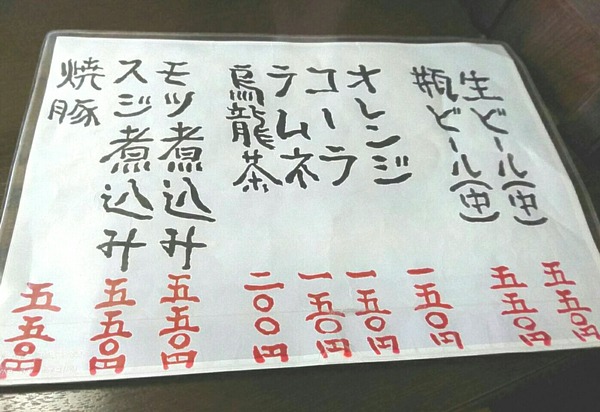 生ビール(中) 五五〇円
瓶ビール(中) 五五〇円
オレンジ 一五〇円
コーラ 一五〇円
ラムネ 一五〇円
烏龍茶 二〇〇円
モツ煮込み 五五〇円
スジ煮込み 五五〇円
焼豚 五五〇円